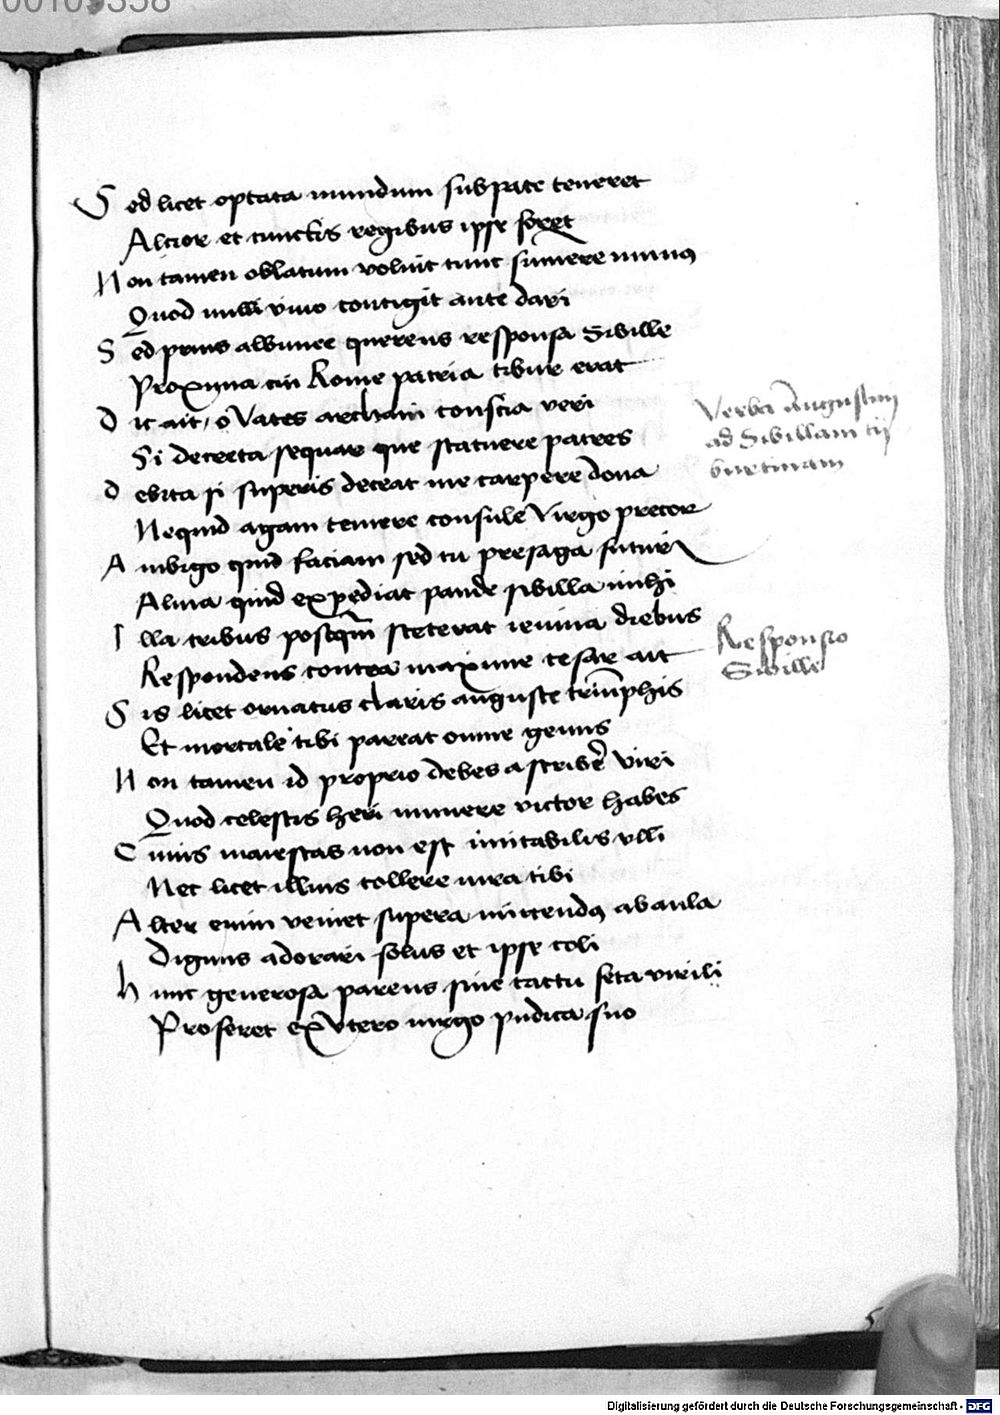 00109358
Sed licet optata mundum sub pace teneret
Altior et cunctis regibus ipse foret
Non tamen oblatum voluit tunc sumere munus
Quod nulli vivo contigit ante dari
Sed prius albunee querens responsa Sibille
Proxima cui Rome patria tibur erat
Dic ait, o Vates archani conscia veri
Si decreta sequar que statuere patres
Debita si superis deceat me carpere dona
Nequid agam temere consule Virgo precor
Ambigo quid faciam sed tu presaga futuri
Alma quid expediat pande sibilla mihi
Illa tribus postqm steterat ieiuna diebus
Respondens contra maxime cesar ait
Sis licet ornatus claris auguste triumphis
Et mortale tibi pareat omne genus
Non tamen id proprio debes ascribere viri
Quod celestis heri munere victor habes
Cuius maiestas non est imitabilis ulli
Nec licet illius tollere iura tibi
Alter enim veniet supera mittendus ab aula
Dignus adorari solus et ipse coli
hunc generosa parens sine tactu feta virili
Proferet ex Vtero virgo pudica suo
Verba Augustini
ad Sibillam ty
burtinam
Responsio
Sibille
Digitalisierung gefördert durch die Deutsche Forschungsgemeinschaft - DFG